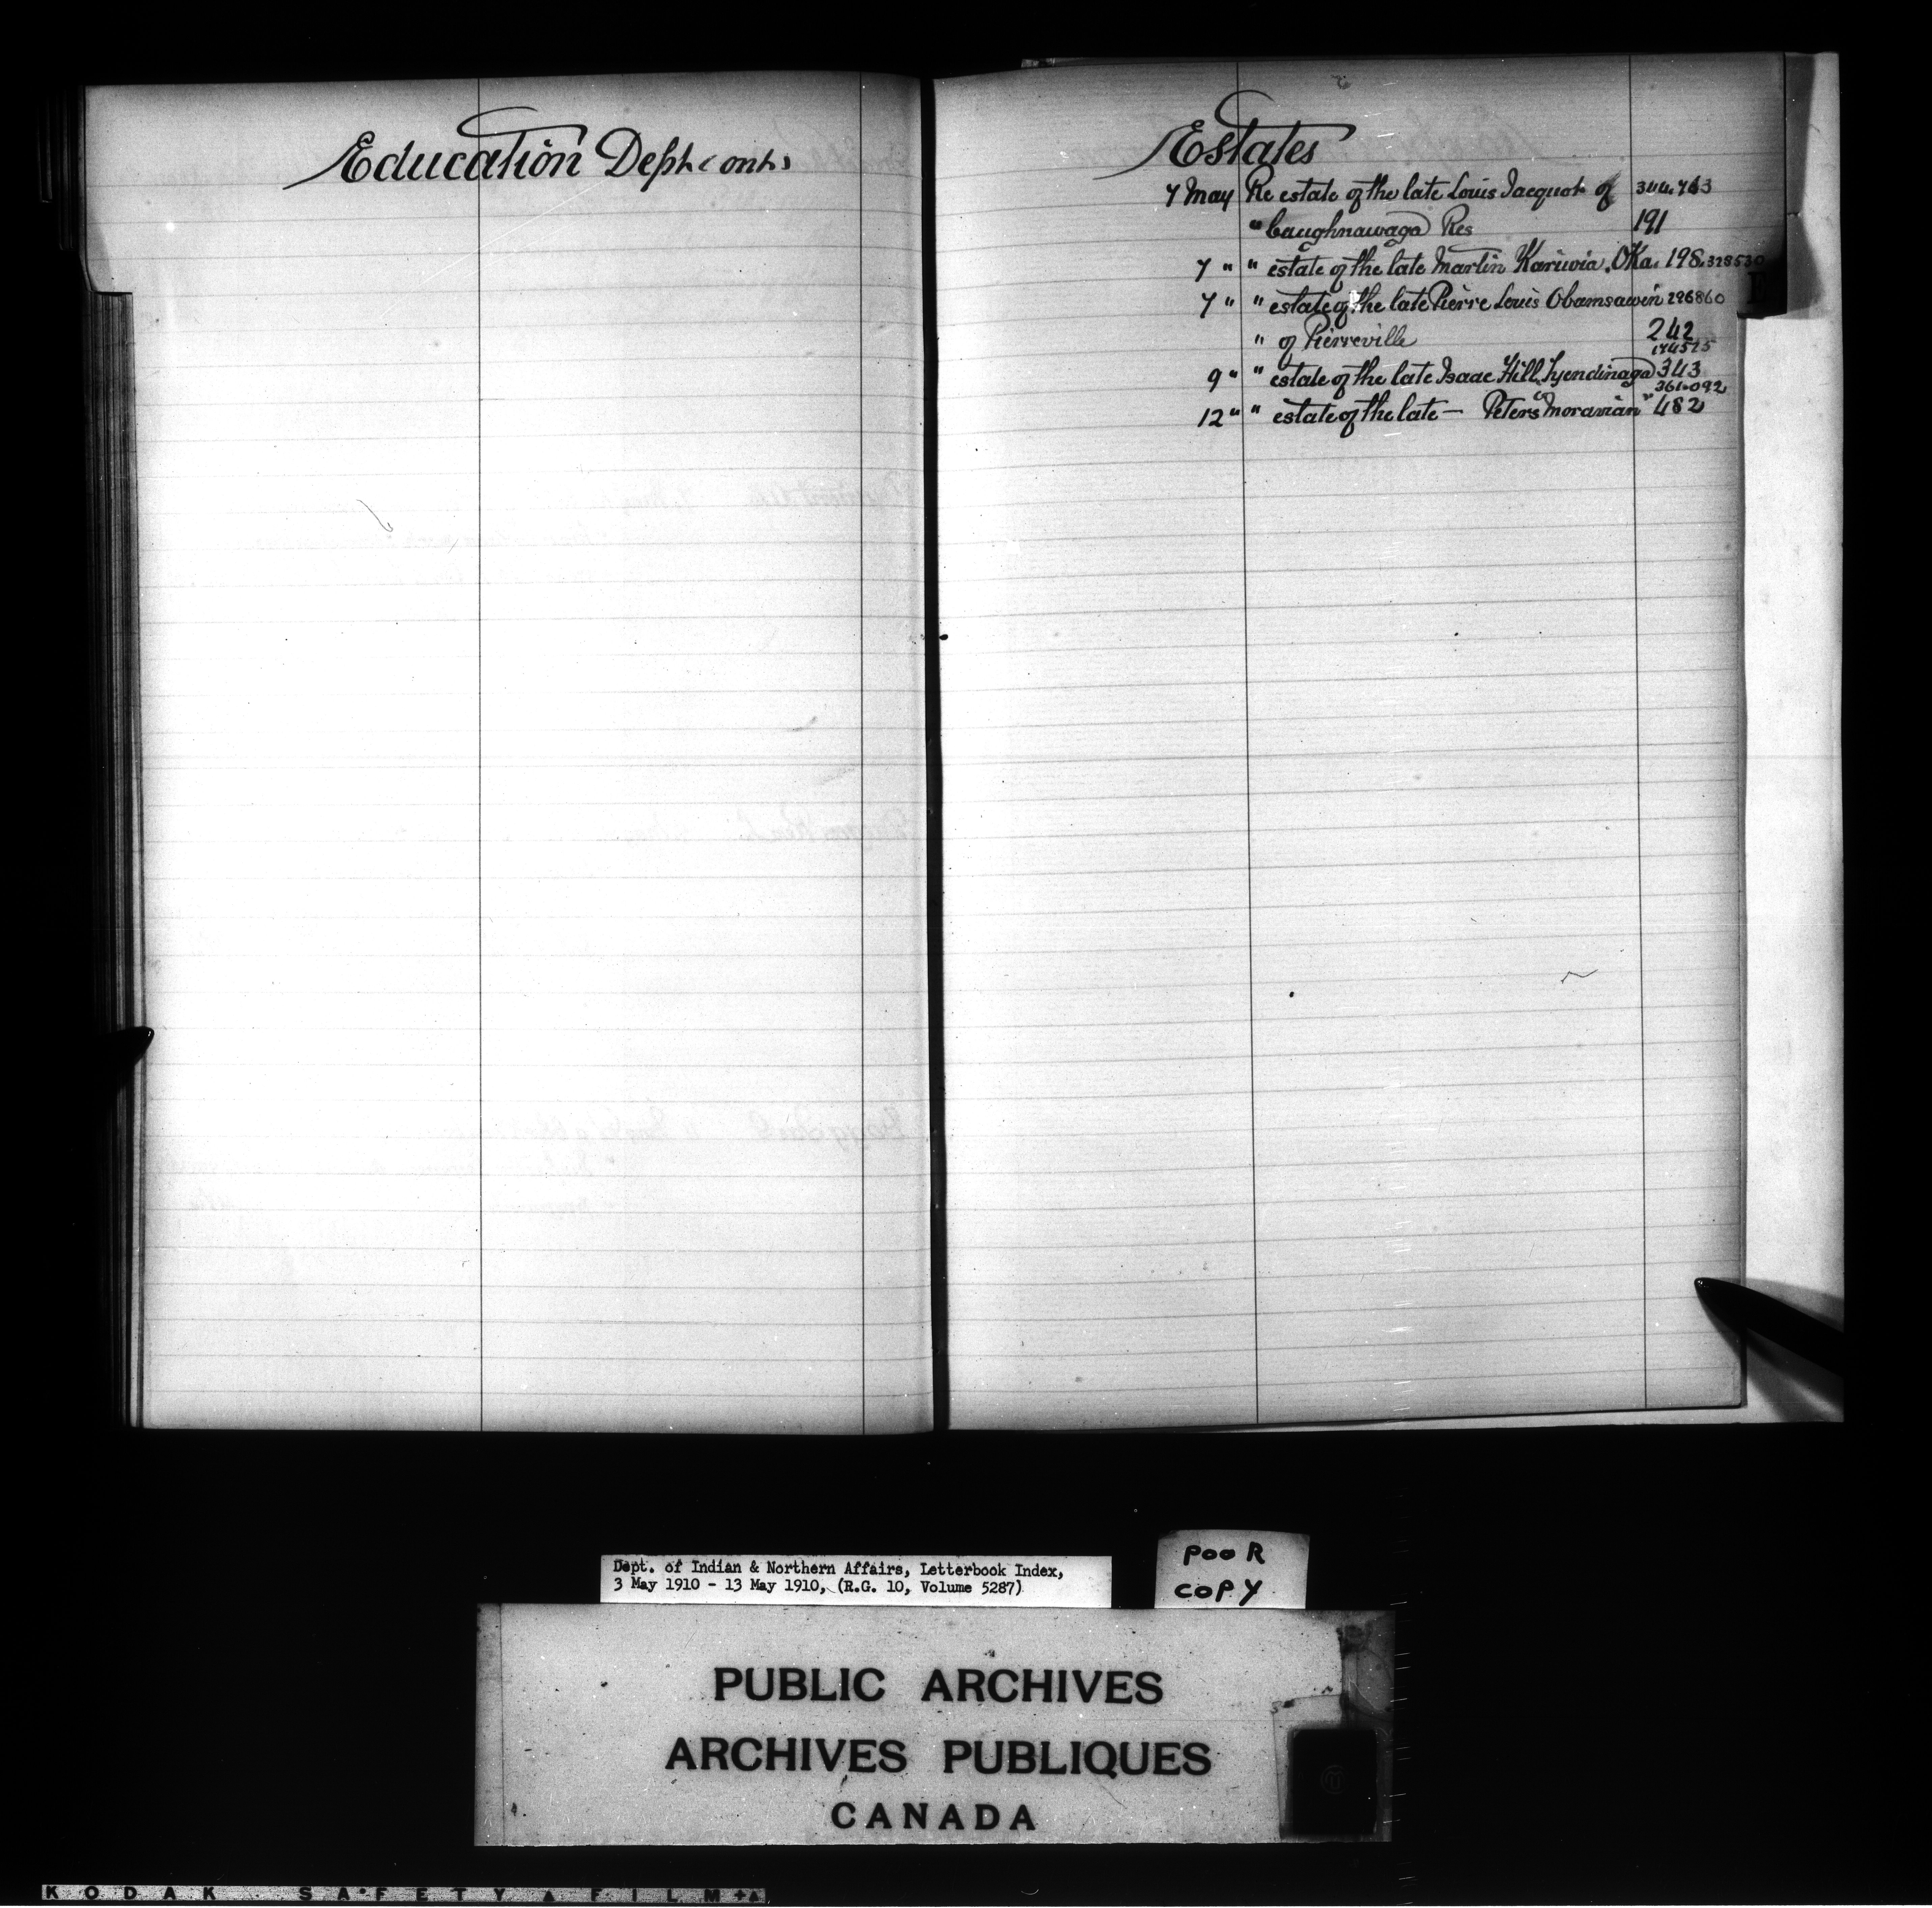 Education Dept (cont)
Estates
7 May Re estate of the late Louis Jacquot of 344.763
" Caughnawaga Res 191
7 " " estate of the late Martin Kariwia. Oka. 198. 328530
7 " " estate of the late Pierre Louis Obamsawin 296860
" of Pierreville 242
174575
9 " " estate of the late Isaac Hill, Tyendinaga 343
361.092
12 " " estate of the late — Peters "Moravian" 482
E
Dept. of Indian & Northern Affairs, Letterbook Index,
3 May 1910 - 13 May 1910, (R.G. 10, Volume 5287)
POOR
COPY
PUBLIC ARCHIVES
ARCHIVES PUBLIQUES
CANADA
KODAK SAFETY FILM